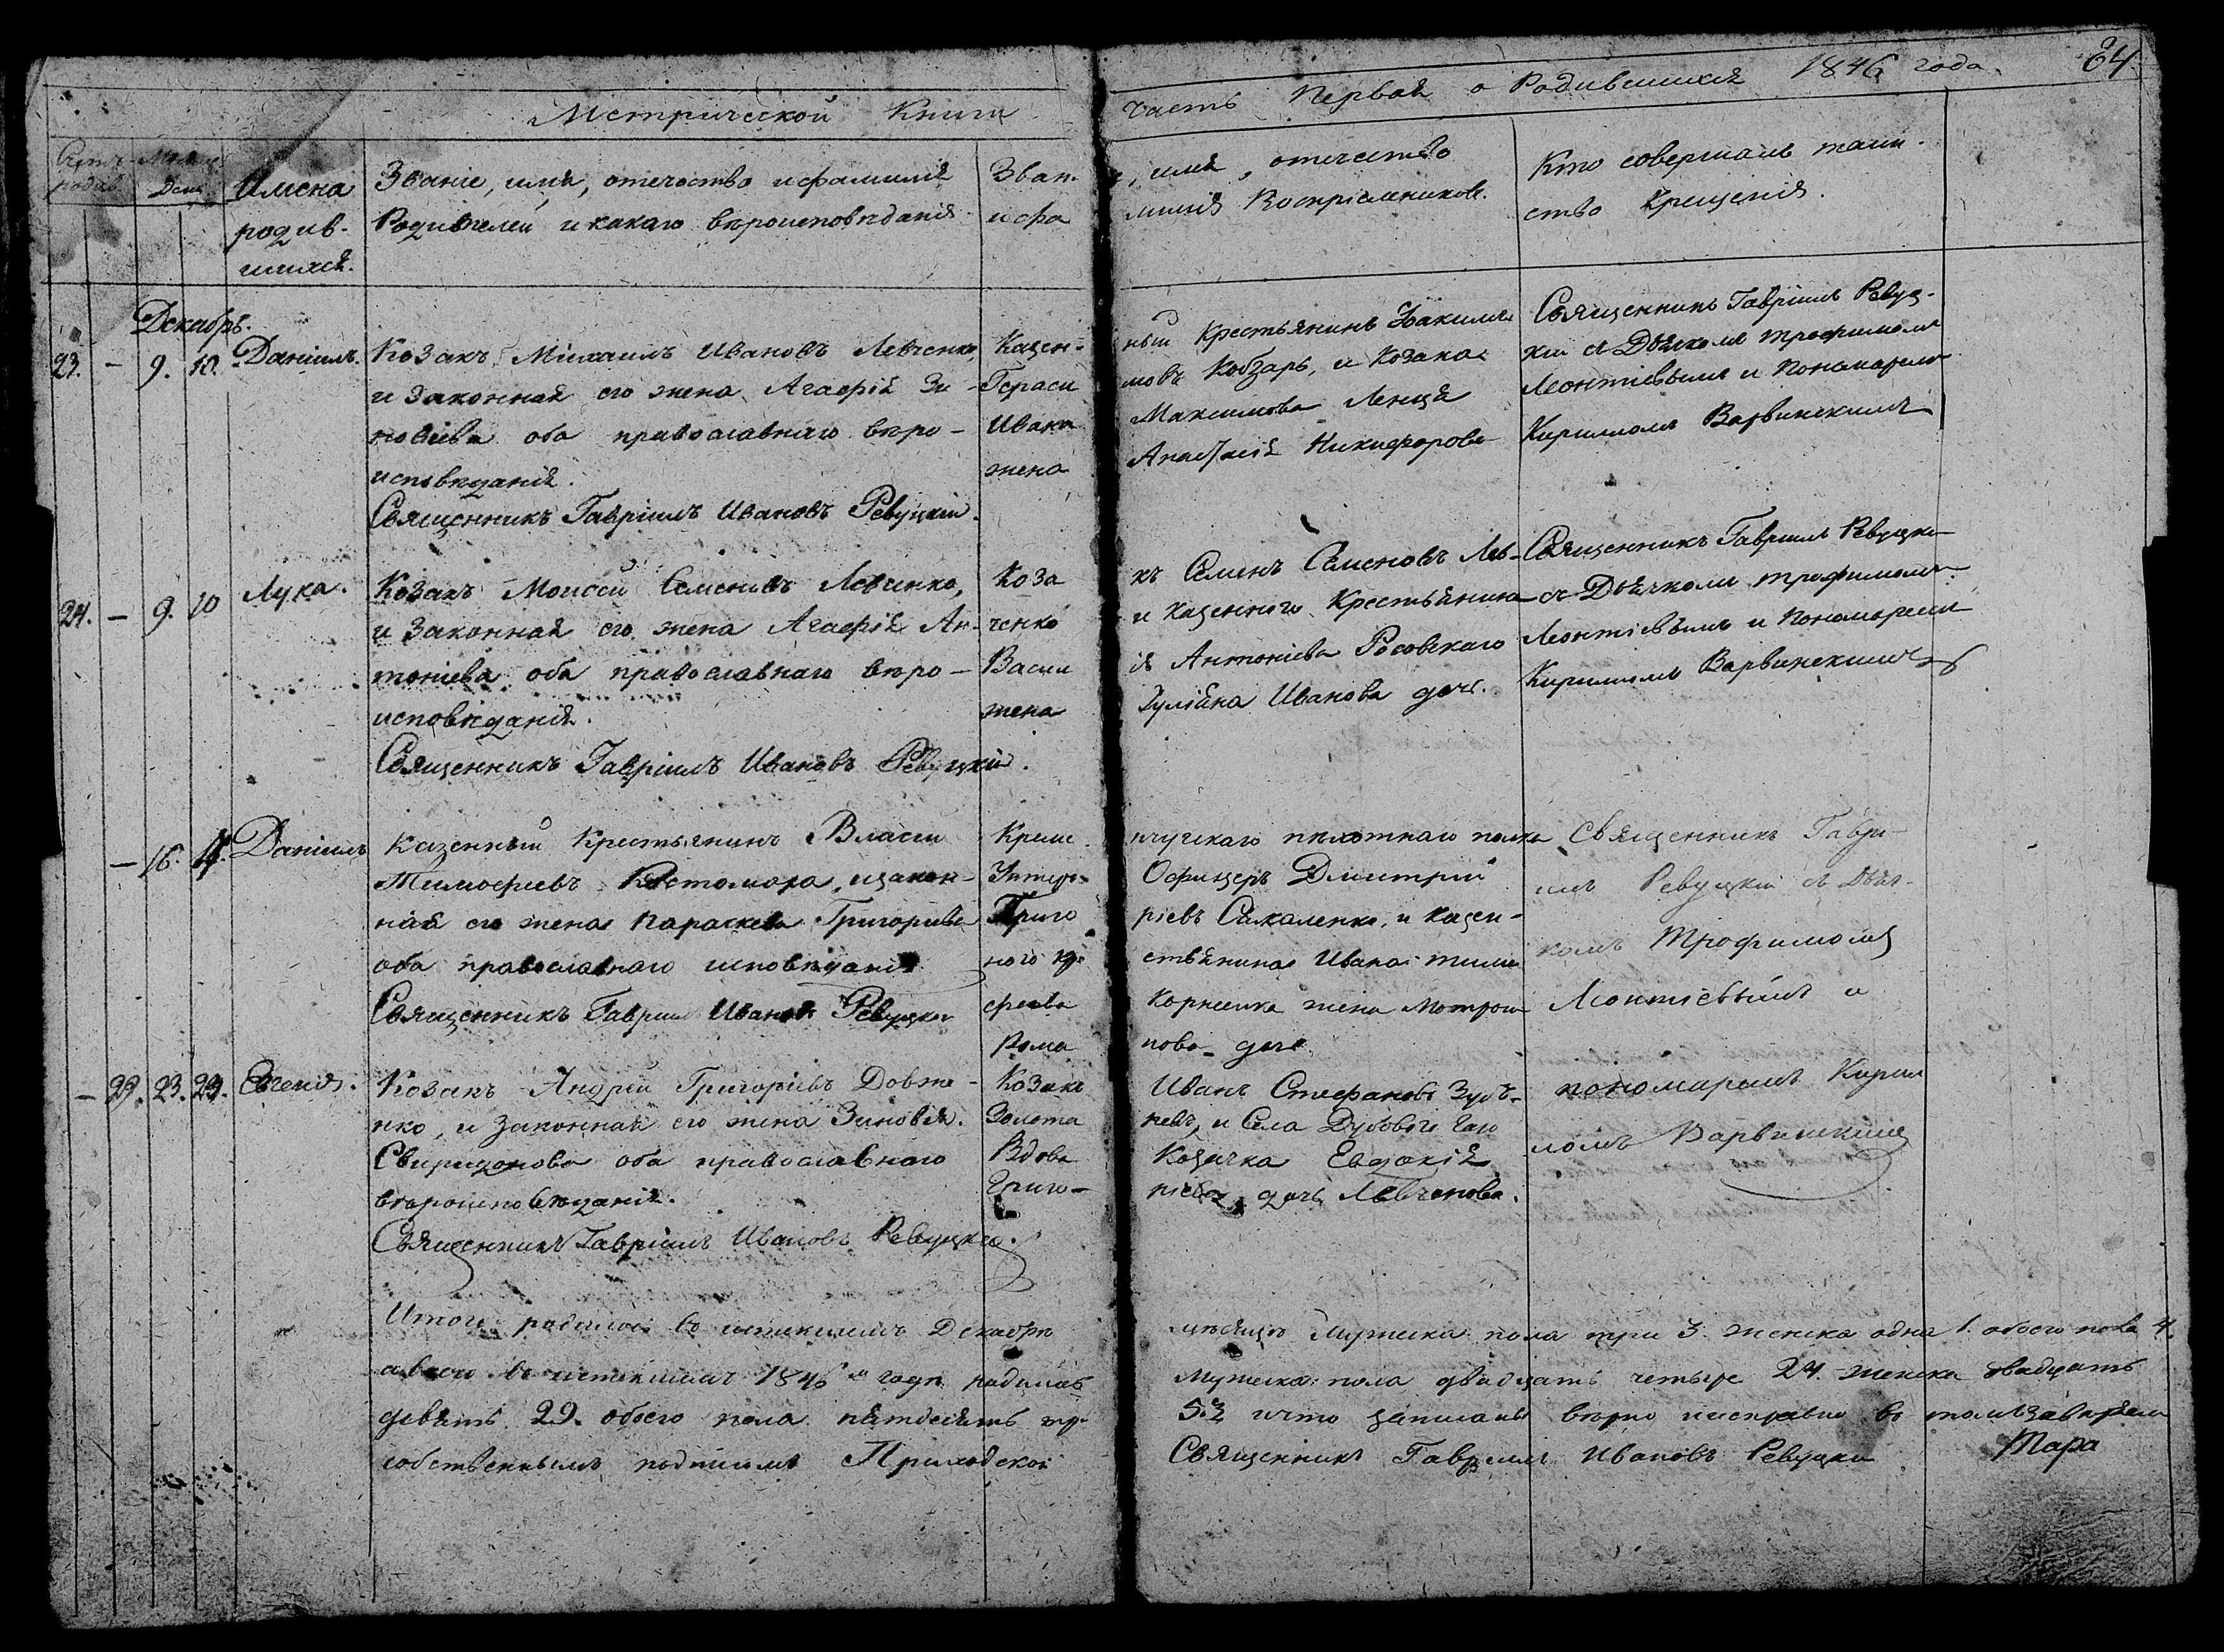 Метрической Книги
часть Первая о Родившихся 1846 года.
Счетъ родив.
Месяц. День
Имена
родив-
шихся.
Званіе, имя, отечество и фамилія
Родителей и какаго вероисповеданія.
Зван.
и фа
имя, отечество
милія Воспріемниковъ.
Кто совершалъ таин-
ство Крещенія.
Декабрь.
23. – 9. 10. Даніилъ.
Козакъ Михаилъ Ивановъ Левченко,
и законная его жена Агафія Зи-
новіева оба православнаго веро-
исповеданія.
Священникъ Гавріилъ Ивановъ Ревуцкій.
Казен-
Гераси
Ивана
жена
ный Крестьянинъ
мовъ Кобзарь, и Козака
Максимова
Анастасія Никифорова
Священникъ Гавріилъ Ревуц-
кій съ Дьячкомъ Трофимомъ
Леонтіевымъ и Пономаремъ
Кириломъ Варвинскимъ
24. – 9. 10 Лука.
Козакъ Моисей Семеновъ Левченко,
и законная его жена Агафія Ан-
тоніева оба православнаго веро-
исповеданія.
Священникъ Гавріилъ Ивановъ Ревуцкій.
Коза
ченко
Васил
жена
къ Семенъ Семеновъ Лев-
и казенного Крестьянина
ія Антоніева Росовскаго
Іуліяна Иванова дочь.
Священникъ Гавріилъ Ревуцкій
съ Дьячкомъ Трофимомъ
Леонтіевымъ и Пономаремъ
Кириломъ Варвинскимъ
– 16. Даніилъ
Казенный Крестьянинъ Власій
Тимофеевъ Костомаха, и закон-
ная его жена Параскева Григоріева
оба православнаго исповеданія
Священникъ Гавріилъ Ивановъ Ревуцкій
Креме
Унтеръ
Григо
ного кре
феева
Рома
нчугскаго пехотнаго полка
Офицеръ Дмитрій
ріевъ Сакаленко, и казен-
стьянина Ивана Тимо
жена Мотрона
нова дочь
Священникъ Гаврі-
илъ Ревуцкій съ Дьяч-
комъ Трофимомъ
Леонтіевымъ и
– 22. 23. 23. Евгенія.
Козакъ Андрей Григоріевъ Довже-
нко, и законная его жена Зиновія
Свиридонова оба православнаго
вероисповеданія.
Священникъ Гавріилъ Ивановъ Ревуцкій.
Козакъ
Золота
Вдова
Григо-
Иванъ Стефановъ
и Села
Козачка Евдокія
ріева дочь Левченкова.
пономаремъ Кири
ломъ Варвинскимъ
Итого родилось въ истекшемъ Декабре
месяце Мужеска пола три 3. женска одна 1. обоего пола 4.
а всего въ истекшемъ 1846 м годе родилось
Мужеска пола двадцать четыре 24. женска двадцать
девять 29. обоего пола пятдесять три
53 и что записаны верно и исправно въ томъ
собственнымъ подписомъ Приходской
Священникъ Гавріилъ Ивановъ Ревуцкій
Тара